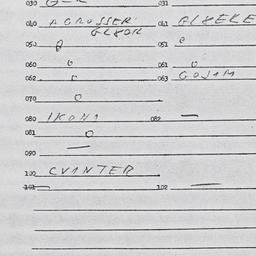 030 031
040 AGROSSER 041 ALXELE
GLXOR
050 0 051 0
060 0 061 0
062 0 063 GOJAM
070 0
080 IKONA 082 —
081 0
090 —
100 CVANTER
101 — 102 —